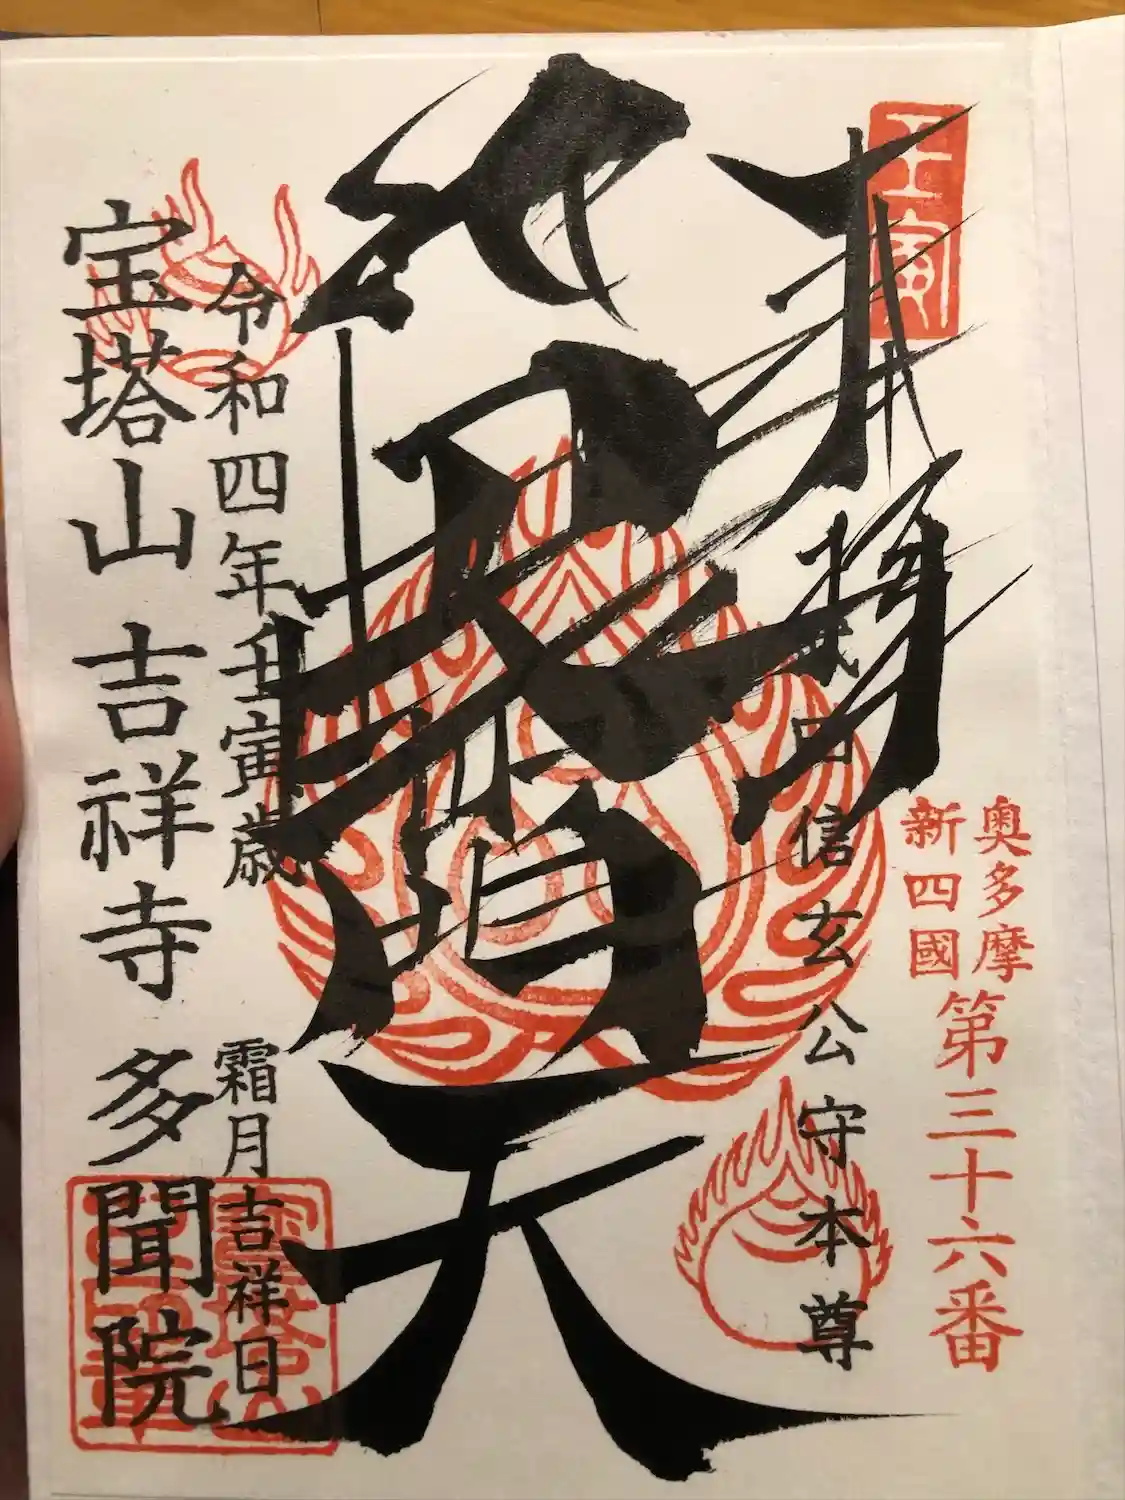 奥多摩
新四國
第三十六番
壬寅
奉拝
武田信玄公守本尊
毘沙門天
令和四年壬寅歳 霜月吉祥日
宝塔山 吉祥寺 多聞院